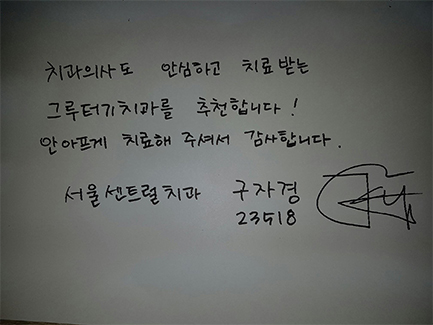 치과의사도 안심하고 치료받는
그루터기치과를 추천합니다!
안아프게 치료해 주셔서 감사합니다.
서울센트럴치과 구자경
23518